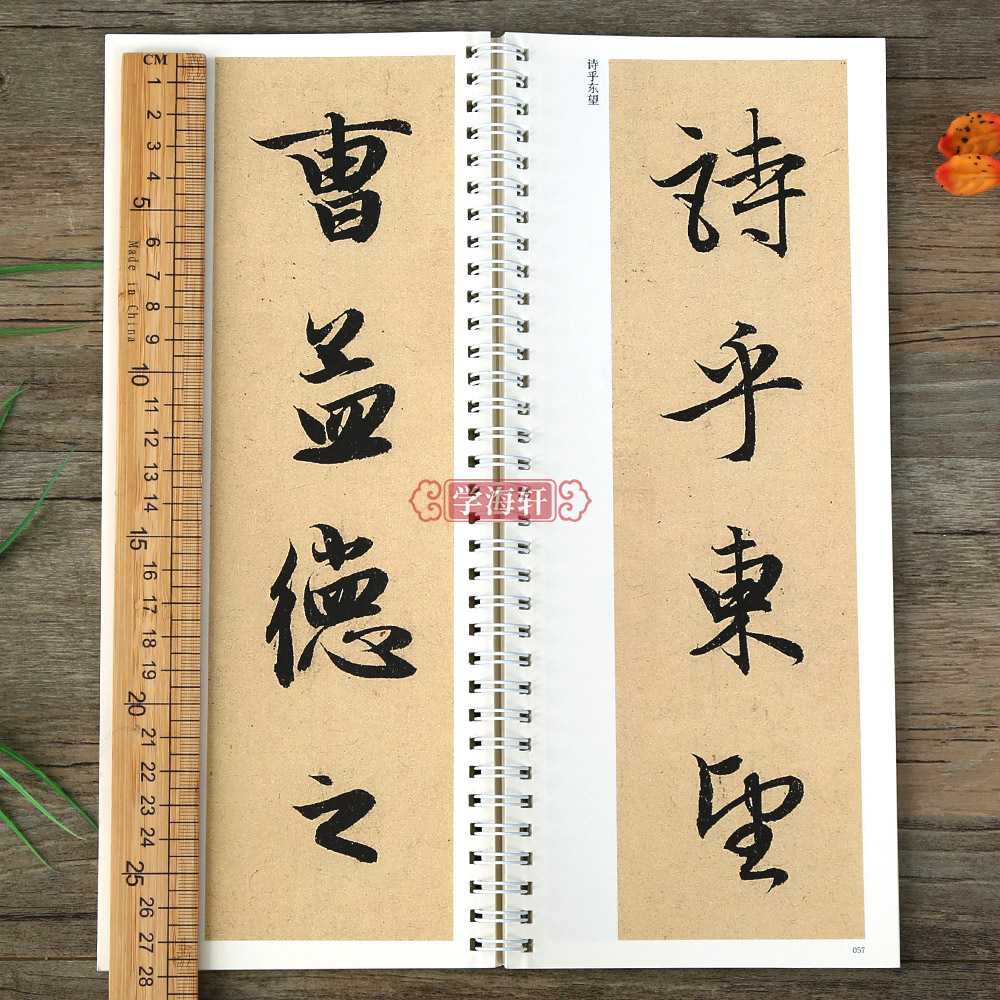 CM 1 2 3 4 5 6 7 8 9 10 11 12 13 14 15 16 17 18 19 20 21 22 23 24 25 26 27 28
Made in China
曹孟德之
学海轩
诗乎东望
詩乎東望
057